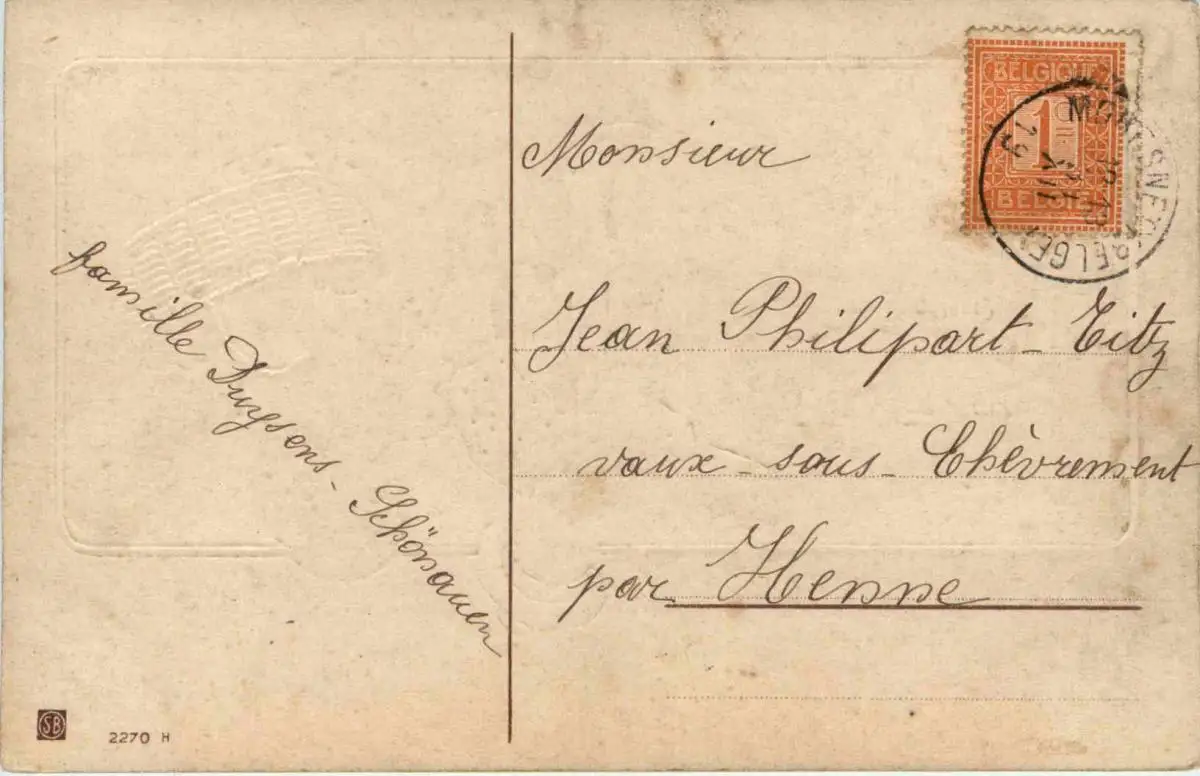 famille Duysens - Schönauen
BELGIQUE
1
BELGIË
BELGE
Monsieur
Jean Philipart - Titz
vaux - sous - Chèvremont
par Henne
SB
2270 H